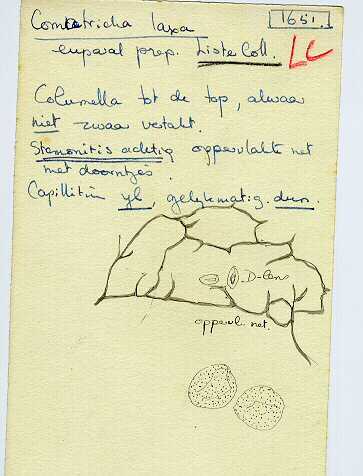 Comatricha laxa
1651.
euparal prep. Liste Coll.
LC
Columella tot de top, alwaar
niet zwaar vertakt.
Stemonitis achtig oppervlakte net
met doorntjes.
Capillitium ijl, gelijkmatig dun.
D-Lens
oppervl. net.